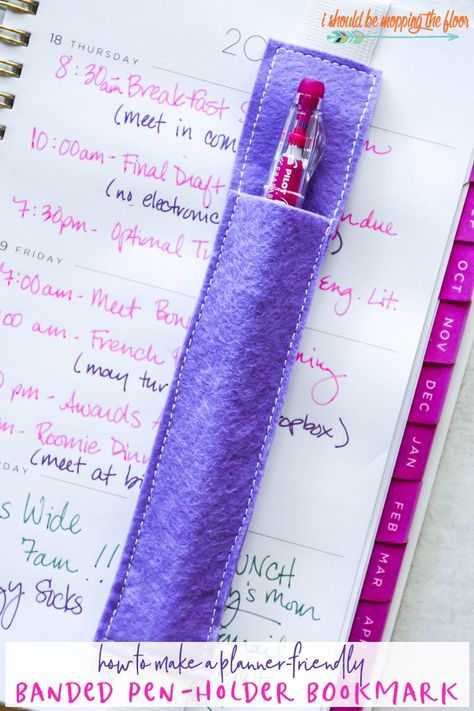 i should be mopping the floor
18 THURSDAY
20
8:30am Breakfast
(meet in com
10:00am - Final Draft
(no electronic
7:30pm - Optional Tu
ndue
Eng. Lit.
9 FRIDAY
7:00am - Meet Bon
:00 am - French
ning
(may tur
opbox)
pm - Awards
pm - Roomie Dinn
(meet at bi
DAY
s Wide
7am!!
gy Socks
UNCH
y's mom
PILOT
OCT
NOV
DEC
JAN
FEB
MAR
APR
how to make a planner-friendly
BANDED PEN-HOLDER BOOKMARK